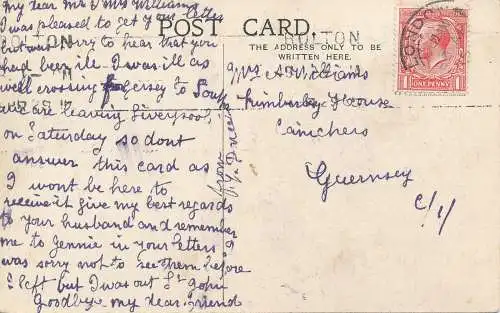 My dear Mr & Mrs Williams
I was pleased to get your letter
but was sorry to hear that you
had been ill. I was ill as
well crossing Jersey to
we are leaving Liverpool
on Saturday so dont
answer this card as
I wont be here to
receive it give my best regards
to your husband and remember
me to Jennie in your letters I
was sorry not to see them before
I left but I was out St John
Goodbye my dear friend
from
POST CARD.
THE ADDRESS ONLY TO BE
WRITTEN HERE.
BOLTON
BOLTON
LONDO
ONE PENNY
1 1
Mrs A Williams
Kimberley House
Canichers
Guernsey
C/I